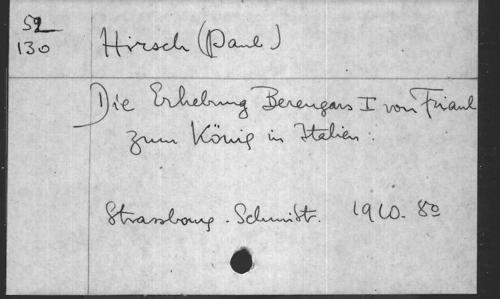 52
130
Hirsch (Paul)
Die Erhebung Berengars I von Friaul
zum König in Italien.
Strassbourg. Schmidt. 1910. 8o